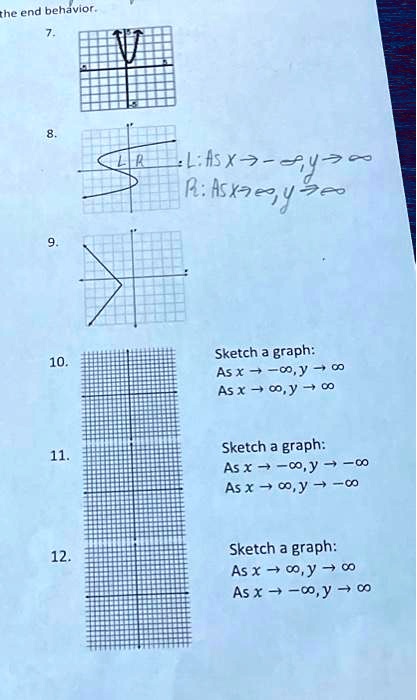 the end behavior.
7.
8.
L R
L: As x → -∞, y → ∞
R: As x → ∞, y → ∞
9.
10.
Sketch a graph:
As x → −∞, y → ∞
As x → ∞, y → ∞
11.
Sketch a graph:
As x → −∞, y → −∞
As x → ∞, y → −∞
12.
Sketch a graph:
As x → ∞, y → ∞
As x → −∞, y → ∞